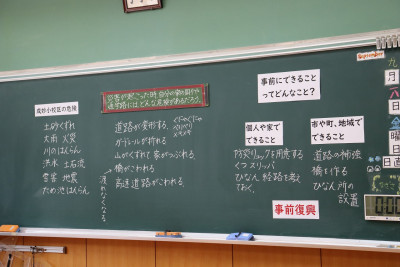 成妙小校区の危険
土砂くずれ
大雨 火災
川のはんらん
洪水 土石流
雪害 地震
ため池はんらん
災害が起こった時、自分の家の周りや
通学路にはどんな危険があるだろう。
道路が変形する。
ぐにゃぐにゃ
バリバリ
ガードレールが折れる
山がくずれて家がつぶれる。
橋がこわれる。
高速道路がこわれる。
渡れなくなる
事前にできること
ってどんなこと？
個人や家で
できること
防災リュックを用意する
くつ スリッパ
ひなん経路を考え
ておく。
市や町、地域で
できること
道路の補強
橋を作る
ひなん所の
設置
事前復興
September
九
月
日
曜
日
日直